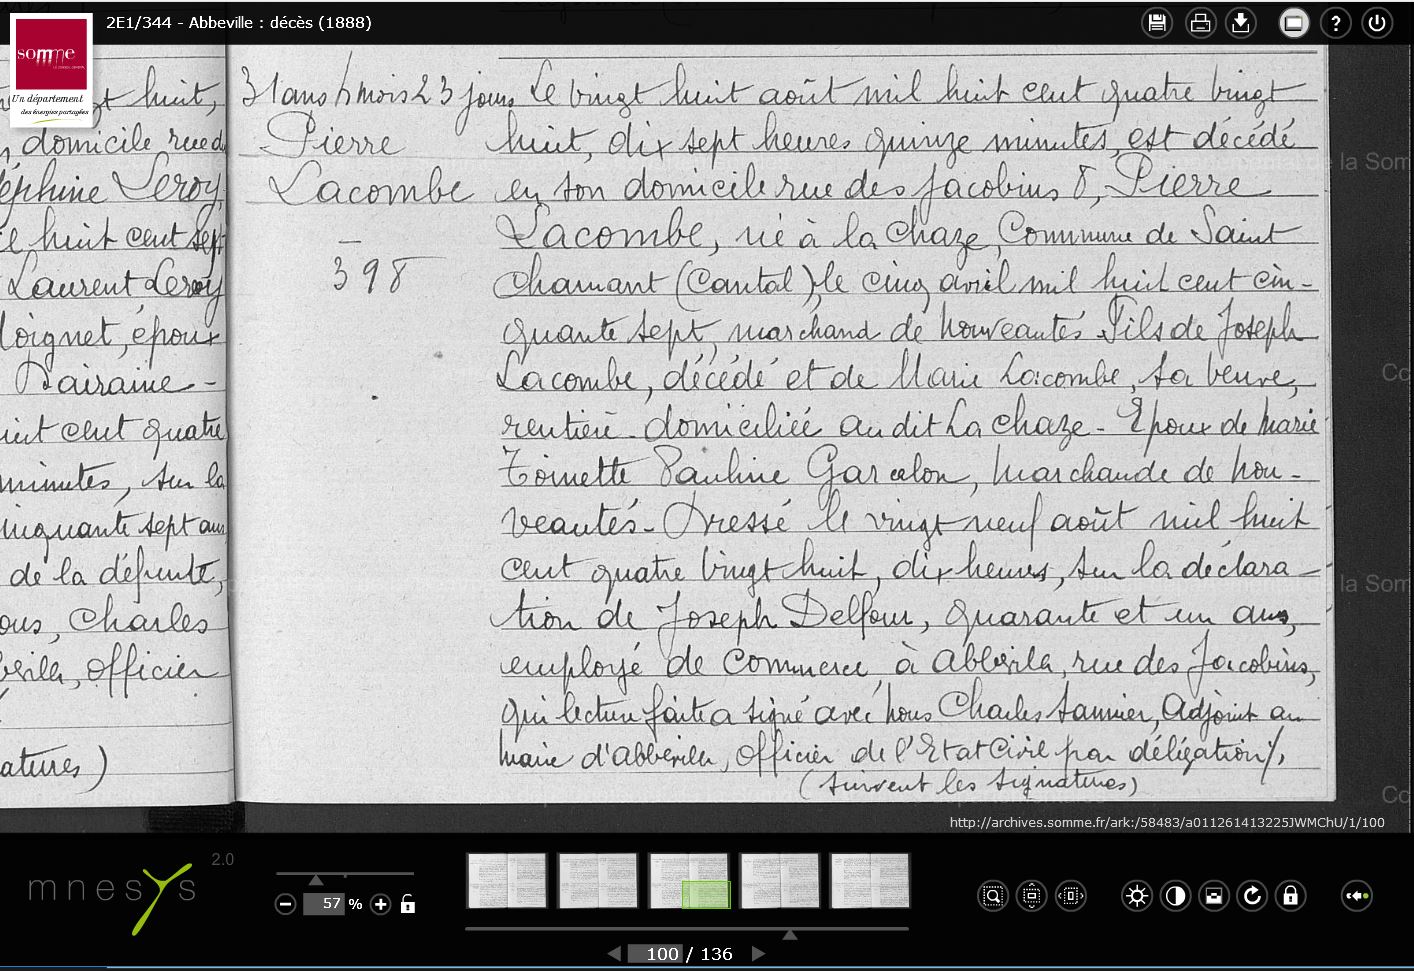 2E1/344 - Abbeville : décès (1888)
somme
Un département
des énergies partagées
huit,
domicile rue d
éphine Leroy,
huit cent sept
Laurent Leroy
oignet, époux
Dairaine -
cent quatre
minutes, sur la
inquante sept ans
de la défunte,
ous, Charles
officier
atures)
31 ans 4 mois 23 jours
Pierre
Lacombe
398
Le vingt huit août mil huit cent quatre vingt
huit, dix sept heures quinze minutes, est décédé
en son domicile rue des Jacobins 8, Pierre
Lacombe, né à la Chaze, Commune de Saint
Chamant (Cantal), le cinq avril mil huit cent cin-
quante sept, marchand de nouveautés. Fils de Joseph
Lacombe, décédé et de Marie Lacombe, sa veuve,
rentière domiciliée au dit La Chaze - Epoux de Marie
Toinette Pauline Garcelon, marchande de nou-
veautés - Dressé le vingt neuf août mil huit
cent quatre vingt huit, dix heures, sur la déclara-
tion de Joseph Delfour, quarante et un ans,
employé de Commerce, à Abbeville, rue des Jacobins,
qui lecture faite a signé avec nous Charles Sannier, Adjoint au
Maire d'Abbeville, Officier de l'Etat Civil par délégation
(Suivent les signatures)
http://archives.somme.fr/ark:/58483/a011261413225JWMChU/1/100
mnesys 2.0
57 %
100 / 136